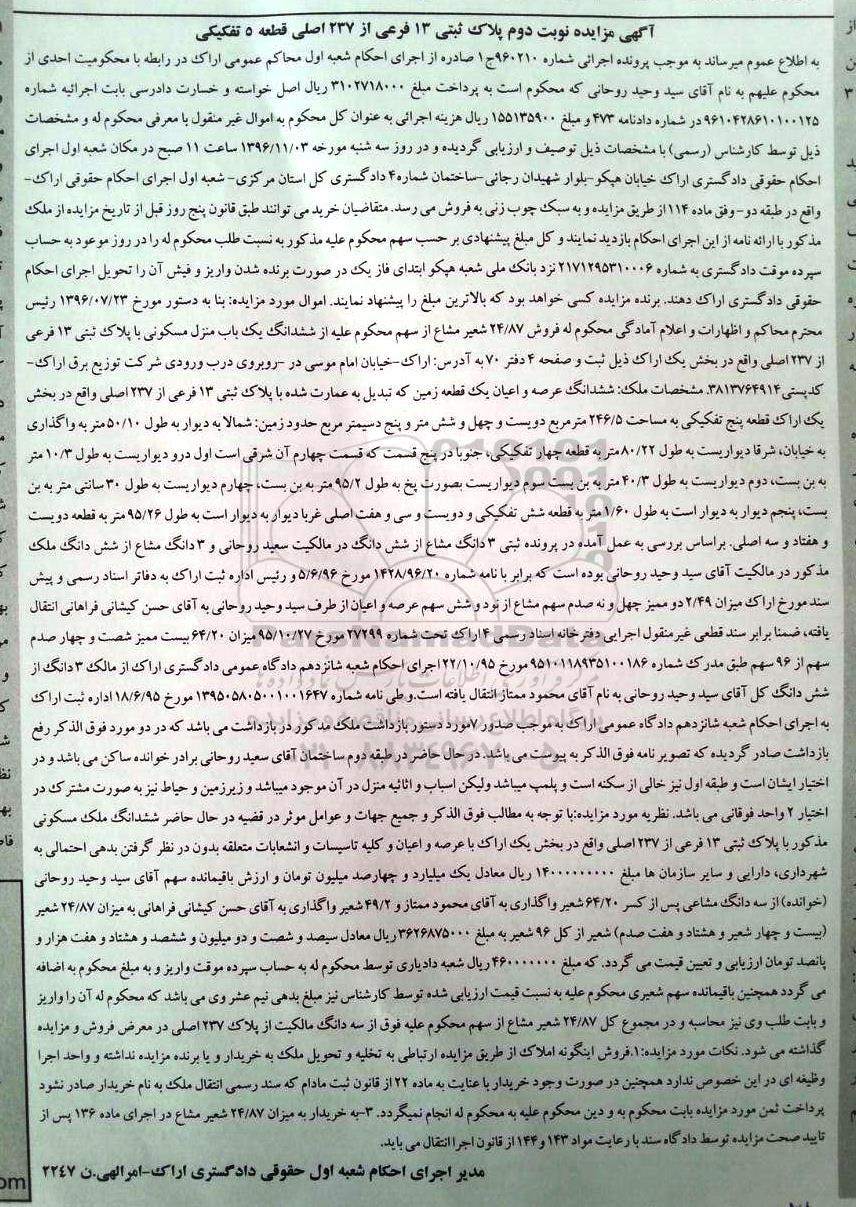 آگهی مزایده نوبت دوم پلاک ثبتی ۱۳ فرعی از ۲۳۷ اصلی قطعه ۵ تفکیکی
به اطلاع عموم میرساند به موجب پرونده اجرائی شماره ۹۶۰۲۱۰ج۱ صادره از اجرای احکام شعبه اول محاکم عمومی اراک در رابطه با محکومیت احدی از
محکوم علیهم به نام آقای سید وحید روحانی که محکوم است به پرداخت مبلغ ۳۱۰۲۷۱۸۰۰۰ ریال اصل خواسته و خسارت دادرسی بابت اجرائیه شماره
۹۶۱۰۴۲۸۶۱۰۱۰۰۱۲۵ در شماره دادنامه ۴۷۳ و مبلغ ۱۵۵۱۳۵۹۰۰ ریال هزینه اجرائی به عنوان کل محکوم به اموال غیر منقول با معرفی محکوم له و مشخصات
ذیل توسط کارشناس (رسمی) با مشخصات ذیل توصیف و ارزیابی گردیده و در روز سه شنبه مورخه ۱۳۹۶/۱۱/۰۳ ساعت ۱۱ صبح در مکان شعبه اول اجرای
احکام حقوقی دادگستری اراک خیابان هپکو-بلوار شهیدان رجائی-ساختمان شماره۴ دادگستری کل استان مرکزی- شعبه اول اجرای احکام حقوقی اراک-
واقع در طبقه دو-وفق ماده ۱۱۴ از طریق مزایده و به سبک چوب زنی به فروش می رسد. متقاضیان خرید می توانند طبق قانون پنج روز قبل از تاریخ مزایده از ملک
مذکور با ارائه نامه از این اجرای احکام بازدید نمایند و کل مبلغ پیشنهادی بر حسب سهم محکوم علیه مذکور به نسبت طلب محکوم له را در روز موعود به حساب
سپرده موقت دادگستری به شماره ۲۱۷۱۲۹۵۳۱۰۰۰۶ نزد بانک ملی شعبه هپکو ابتدای فاز یک در صورت برنده شدن واریز و فیش آن را تحویل اجرای احکام
حقوقی دادگستری اراک دهند. برنده مزایده کسی خواهد بود که بالاترین مبلغ را پیشنهاد نمایند. اموال مورد مزایده: بنا به دستور مورخ ۱۳۹۶/۰۷/۲۳ رئیس
محترم محاکم و اظهارات و اعلام آمادگی محکوم له فروش ۲۴/۸۷ شعیر مشاع از سهم محکوم علیه از ششدانگ یک باب منزل مسکونی با پلاک ثبتی ۱۳ فرعی
از ۲۳۷ اصلی واقع در بخش یک اراک ذیل ثبت و صفحه ۴ دفتر ۷۰ به آدرس: اراک-خیابان امام موسی در -روبروی درب ورودی شرکت توزیع برق اراک-
کدپستی۳۸۱۳۷۶۴۹۱۴. مشخصات ملک: ششدانگ عرصه و اعیان یک قطعه زمین که تبدیل به عمارت شده با پلاک ثبتی ۱۳ فرعی از ۲۳۷ اصلی واقع در بخش
یک اراک قطعه پنج تفکیکی به مساحت ۲۴۶/۵ مترمربع دویست و چهل و شش متر و پنج دسیمتر مربع حدود زمین: شمالا به دیوار به طول ۵۰/۱۰ متر به واگذاری
به خیابان، شرقا دیواریست به طول ۸۰/۲۲ متر به قطعه چهار تفکیکی، جنوبا در پنج قسمت که قسمت چهارم آن شرقی است اول درو دیواریست به طول ۱۰/۳ متر
به بن بست، دوم دیواریست به طول ۴۰/۳ متر به بن بست سوم دیواریست بصورت پخ به طول ۹۵/۲ متر به بن بست، چهارم دیواریست به طول ۳۰ سانتی متر به بن
بست، پنجم دیوار به دیوار است به طول ۱/۶۰ متر به قطعه شش تفکیکی و دویست و سی و هفت اصلی غربا دیوار به دیوار است به طول ۹۵/۲۶ متر به قطعه دویست
و هفتاد و سه اصلی. براساس بررسی به عمل آمده در پرونده ثبتی ۳ دانگ مشاع از شش دانگ در مالکیت سعید روحانی و ۳ دانگ مشاع از شش دانگ ملک
مذکور در مالکیت آقای سید وحید روحانی بوده است که برابر با نامه شماره ۱۴۲۸/۹۶/۲۰ مورخ ۵/۶/۹۶ و رئیس اداره ثبت اراک به دفاتر اسناد رسمی و پیش
سند مورخ اراک میزان ۲/۴۹ دو ممیز چهل و نه صدم سهم مشاع از نود و شش سهم عرصه و اعیان از طرف سید وحید روحانی به آقای حسن کیشانی فراهانی انتقال
یافته، ضمنا برابر سند قطعی غیرمنقول اجرایی دفترخانه اسناد رسمی ۴ اراک تحت شماره ۲۷۲۹۹ مورخ ۹۵/۱۰/۲۷ میزان ۶۴/۲۰ بیست ممیز شصت و چهار صدم
سهم از ۹۶ سهم طبق مدرک شماره ۹۵۱۰۱۱۸۹۳۵۱۰۰۱۸۶ مورخ ۲۲/۱۰/۹۵ اجرای احکام شعبه شانزدهم دادگاه عمومی دادگستری اراک از مالک ۳ دانگ از
شش دانگ کل آقای سید وحید روحانی به نام آقای محمود ممتاز انتقال یافته است.و طی نامه شماره ۱۳۹۵۰۵۸۰۵۰۰۱۰۰۱۶۴۷ مورخ ۱۸/۶/۹۵ اداره ثبت اراک
به اجرای احکام شعبه شانزدهم دادگاه عمومی اراک به موجب صدور ۷مورد دستور بازداشت ملک مذکور در بازداشت می باشد که در دو مورد فوق الذکر رفع
بازداشت صادر گردیده که تصویر نامه فوق الذکر به پیوست می باشد. در حال حاضر در طبقه دوم ساختمان آقای سعید روحانی برادر خوانده ساکن می باشد و در
اختیار ایشان است و طبقه اول نیز خالی از سکنه است و پلمپ میباشد ولیکن اسباب و اثاثیه منزل در آن موجود میباشد و زیرزمین و حیاط نیز به صورت مشترک در
اختیار ۲ واحد فوقانی می باشد. نظریه مورد مزایده:با توجه به مطالب فوق الذکر و جمیع جهات و عوامل موثر در قضیه در حال حاضر ششدانگ ملک مسکونی
مذکور با پلاک ثبتی ۱۳ فرعی از ۲۳۷ اصلی واقع در بخش یک اراک با عرصه و اعیان و کلیه تاسیسات و انشعابات متعلقه بدون در نظر گرفتن بدهی احتمالی به
شهرداری، دارایی و سایر سازمان ها مبلغ ۱۴۰۰۰۰۰۰۰۰۰ ریال معادل یک میلیارد و چهارصد میلیون تومان و ارزش باقیمانده سهم آقای سید وحید روحانی
(خوانده) از سه دانگ مشاعی پس از کسر ۶۴/۲۰ شعیر واگذاری به آقای محمود ممتاز و ۴۹/۲ شعیر واگذاری به آقای حسن کیشانی فراهانی به میزان ۲۴/۸۷ شعیر
(بیست و چهار شعیر و هشتاد و هفت صدم) شعیر از کل ۹۶ شعیر به مبلغ ۳۶۲۶۸۷۵۰۰۰ ریال معادل سیصد و شصت و دو میلیون و ششصد و هشتاد و هفت هزار و
پانصد تومان ارزیابی و تعیین قیمت می گردد. که مبلغ ۴۶۰۰۰۰۰۰۰ ریال شعبه دادیاری توسط محکوم له به حساب سپرده موقت واریز و به مبلغ محکوم به اضافه
می گردد همچنین باقیمانده سهم شعیری محکوم علیه به نسبت قیمت ارزیابی شده توسط کارشناس نیز مبلغ بدهی نیم عشر وی می باشد که محکوم له آن را واریز
و بابت طلب وی نیز محاسبه و در مجموع کل ۲۴/۸۷ شعیر مشاع از سهم محکوم علیه فوق از سه دانگ مالکیت از پلاک ۲۳۷ اصلی در معرض فروش و مزایده
گذاشته می شود. نکات مورد مزایده:۱.فروش اینگونه املاک از طریق مزایده ارتباطی به تخلیه و تحویل ملک به خریدار و یا برنده مزایده نداشته و واحد اجرا
وظیفه ای در این خصوص ندارد همچنین در صورت وجود خریدار با عنایت به ماده ۲۲ از قانون ثبت مادام که سند رسمی انتقال ملک به نام خریدار صادر نشود
پرداخت ثمن مورد مزایده بابت محکوم به و دین محکوم علیه به محکوم له انجام نمیگردد. ۳-به خریدار به میزان ۲۴/۸۷ شعیر مشاع در اجرای ماده ۱۳۶ پس از
تایید صحت مزایده توسط دادگاه سند با رعایت مواد ۱۴۳ و ۱۴۴ از قانون اجرا انتقال می یابد.
مدیر اجرای احکام شعبه اول حقوقی دادگستری اراک-امرالهی.ن ۲۲۴۷
ParsNamadData